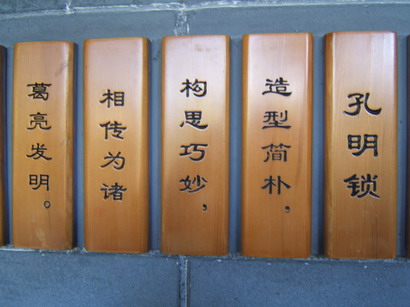 孔明锁
造型简朴，
构思巧妙，
相传为诸
葛亮发明。